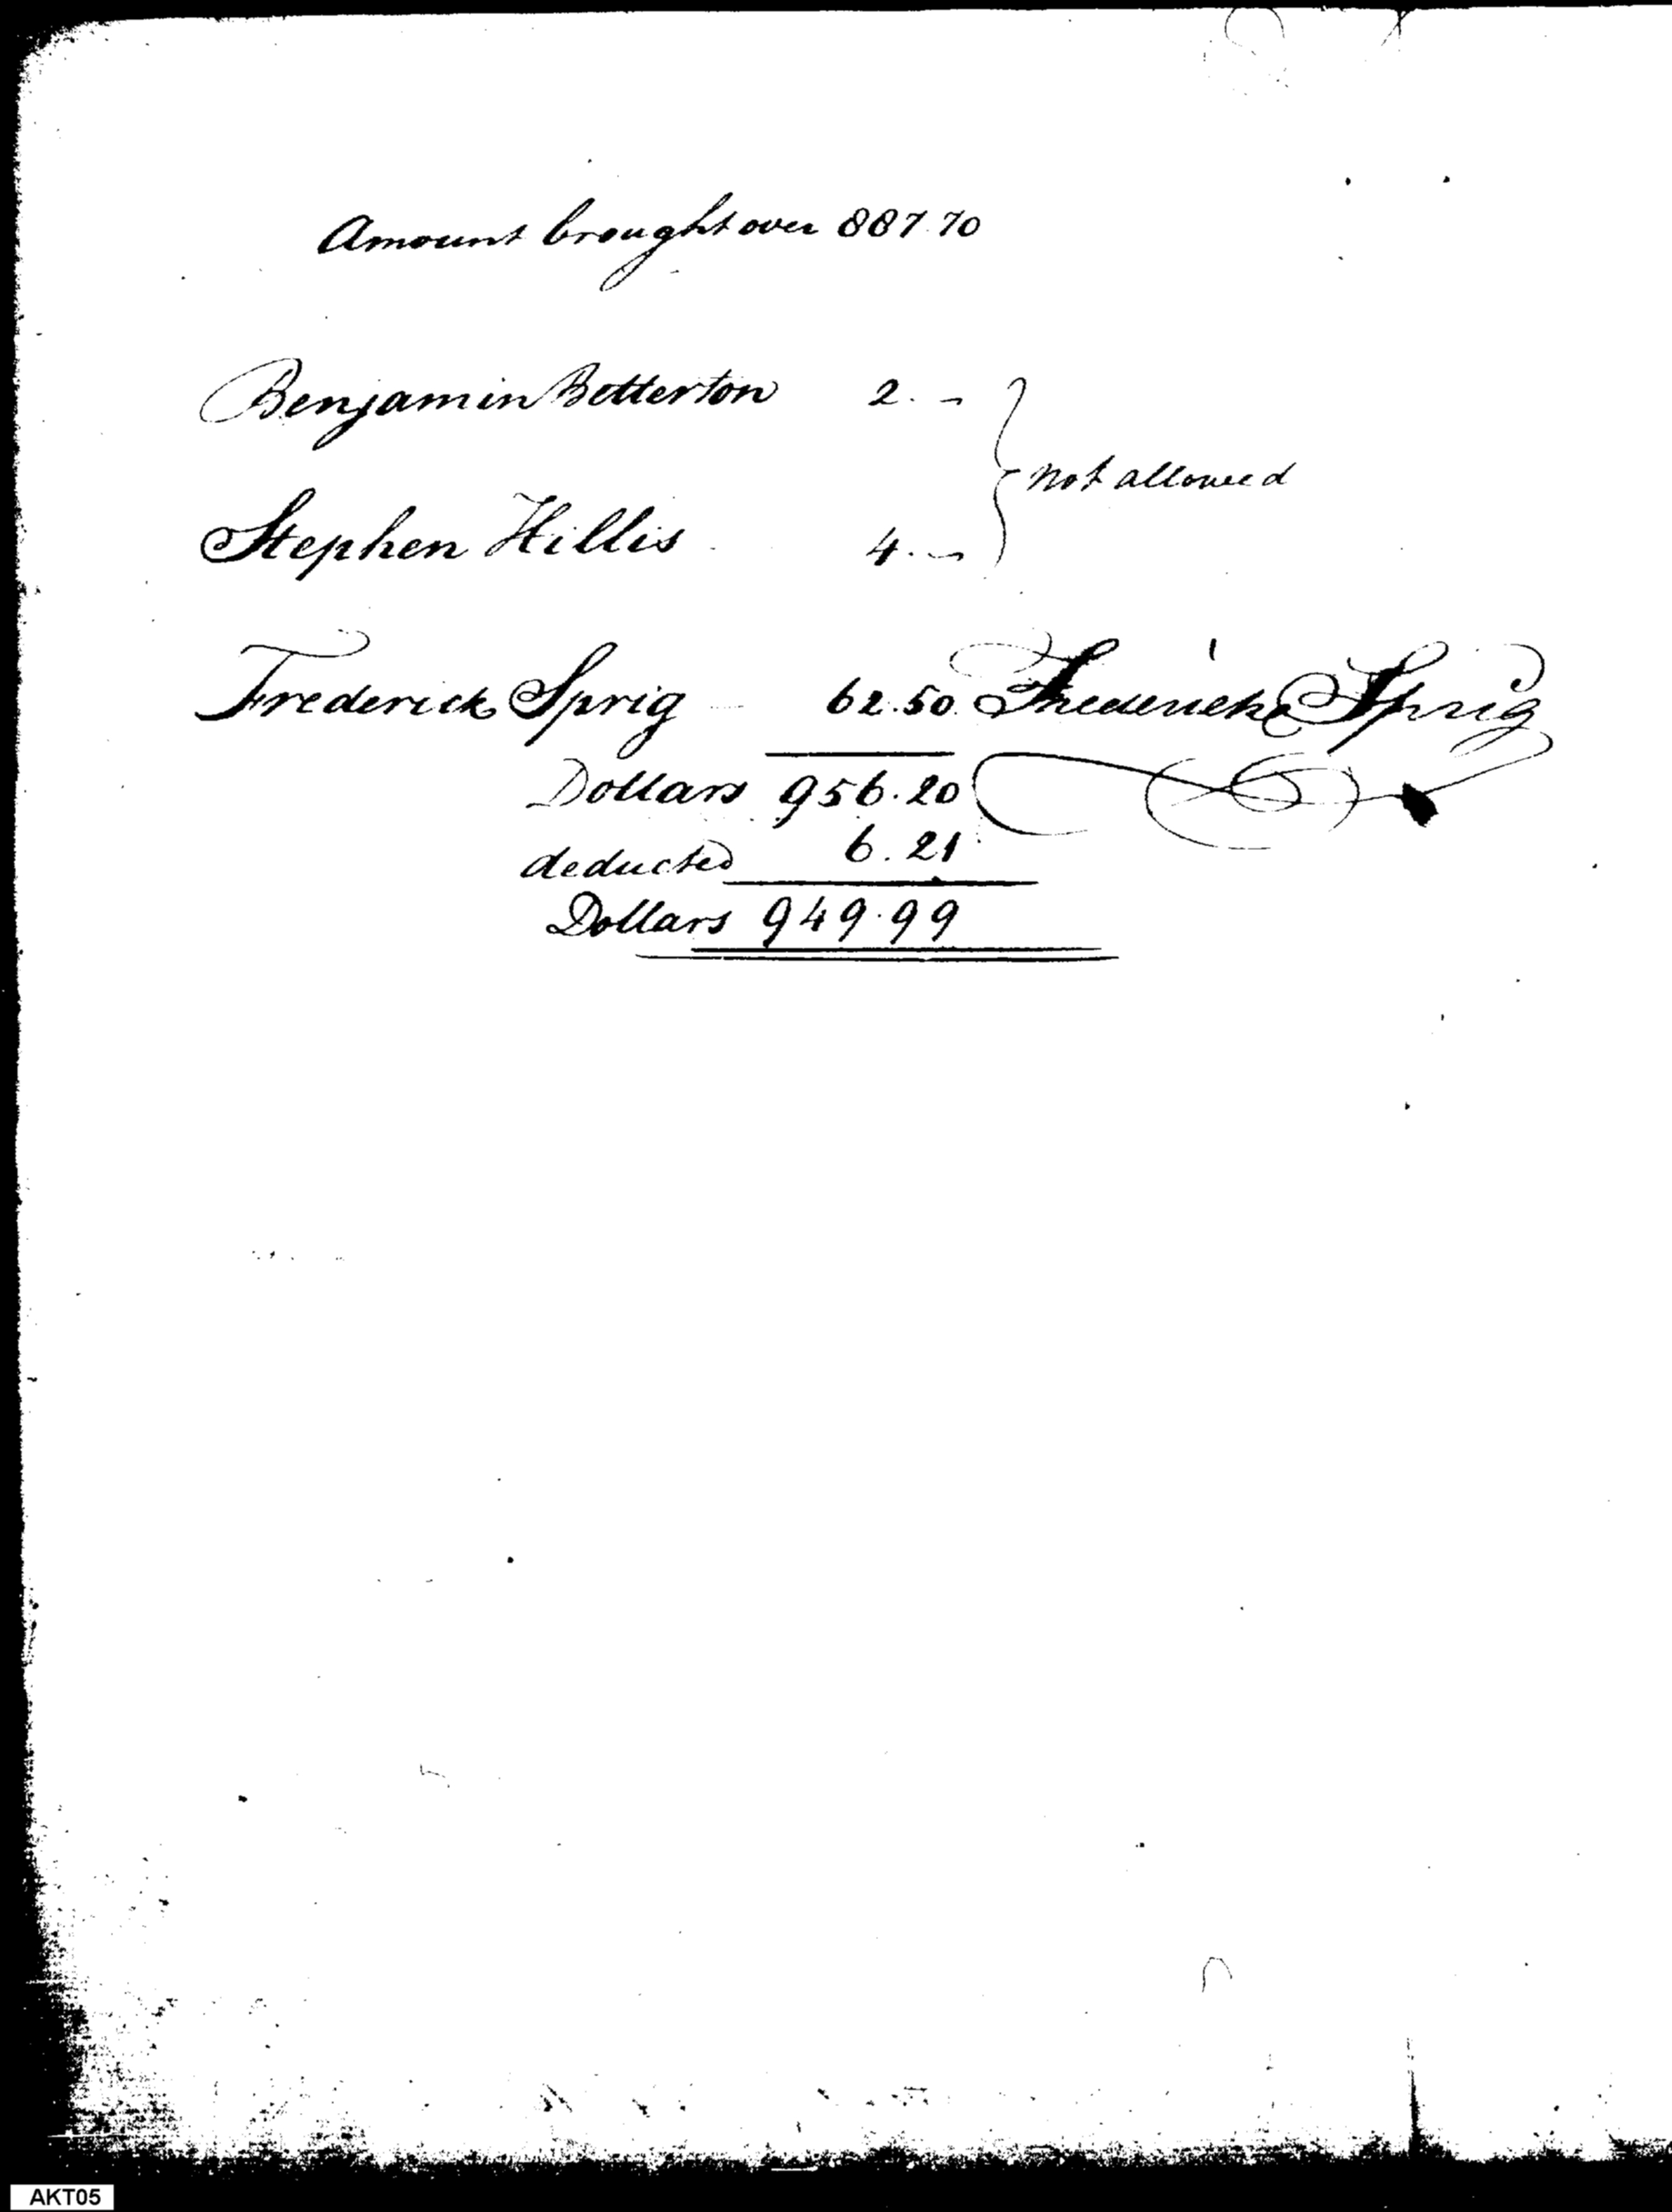 Amount brought over 887.70
Benjamin Betterton 2. -
not allowed
Stephen Hillis 4. -
Frederick Sprig 62.50 Frederick Sprig
Dollars 956.20
deducted 6.21
Dollars 949.99
AKT05